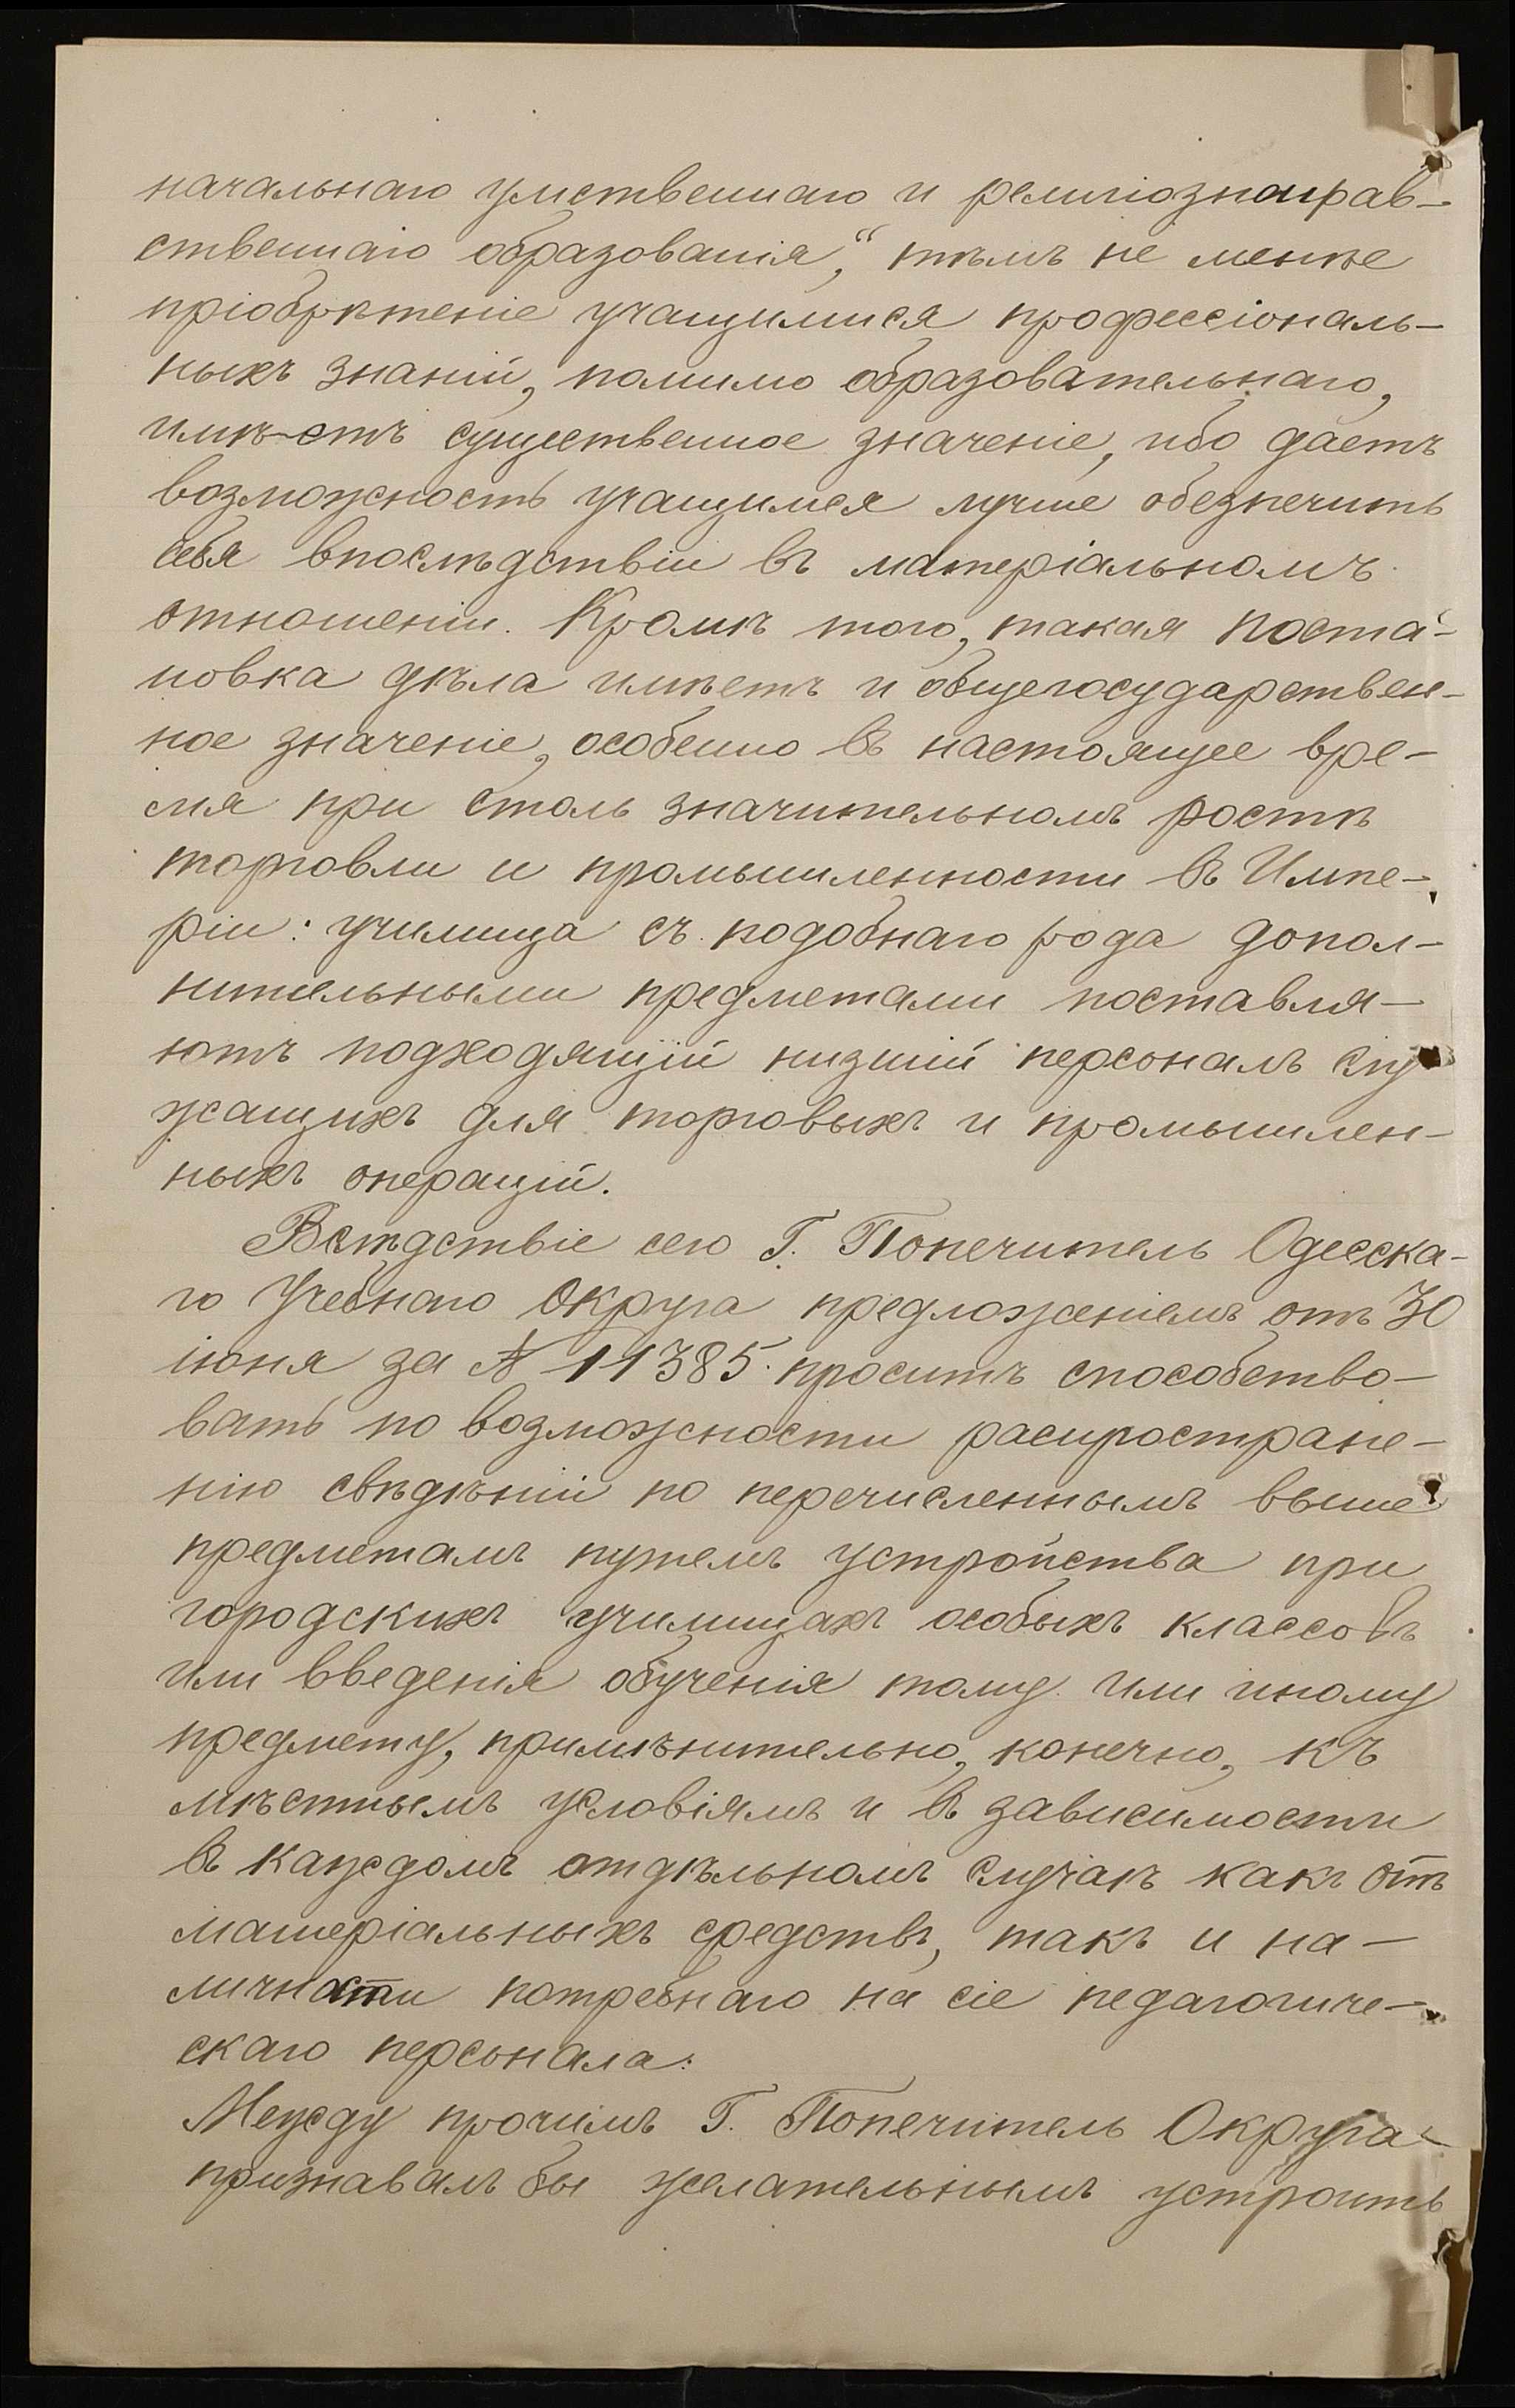 начальнаго умственнаго и религіознонрав-
ственнаго образованія,“ тѣмъ не менѣе
пріобрѣтеніе учащимися профессіональ-
ныхъ знаній, помимо образовательнаго,
имѣетъ существенное значеніе, ибо даетъ
возможность учащимся лучше обезпечить
себя впослѣдствіи въ матеріальномъ
отношеніи. Кромѣ того, такая поста-
новка дѣла имѣетъ и общегосударствен-
ное значеніе, особенно въ настоящее вре-
мя при столь значительномъ ростѣ
торговли и промышленности въ Импе-
ріи: училища съ подобнаго рода допол-
нительными предметами поставля-
ютъ подходящій низшій персоналъ слу-
жащихъ для торговыхъ и промышлен-
ныхъ операцій.
Вслѣдствіе сего Г. Попечитель Одесска-
го Учебнаго Округа предложеніемъ отъ 30
іюня за № 11385 проситъ способство-
вать по возможности распростране-
нію свѣдѣній по перечисленнымъ выше
предметамъ путемъ устройства при
городскихъ училищахъ особыхъ классовъ
или введенія обученія тому или иному
предмету, примѣнительно, конечно, къ
мѣстнымъ условіямъ и въ зависимости
въ каждомъ отдѣльномъ случаѣ какъ отъ
матеріальныхъ средствъ, такъ и на-
личности потребнаго на сіе педагогиче-
скаго персонала.
Между прочимъ Г. Попечитель Округа
признавалъ бы желательнымъ устроить